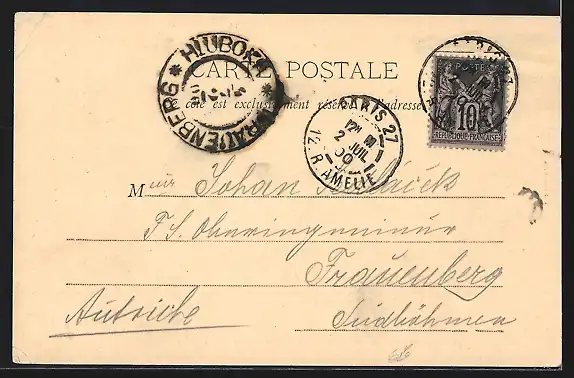 HLUBOKÁ
FRAUENBERG
CARTE POSTALE
Ce côté est exclusivement réservé à l'adresse
PARIS 27
2 JUIL 00
12. R AMELIE
POSTES
10
REPUBLIQUE FRANÇAISE
Meur Johan
F. S. Oberingenieur
Frauenberg
Autriche
Südböhmen